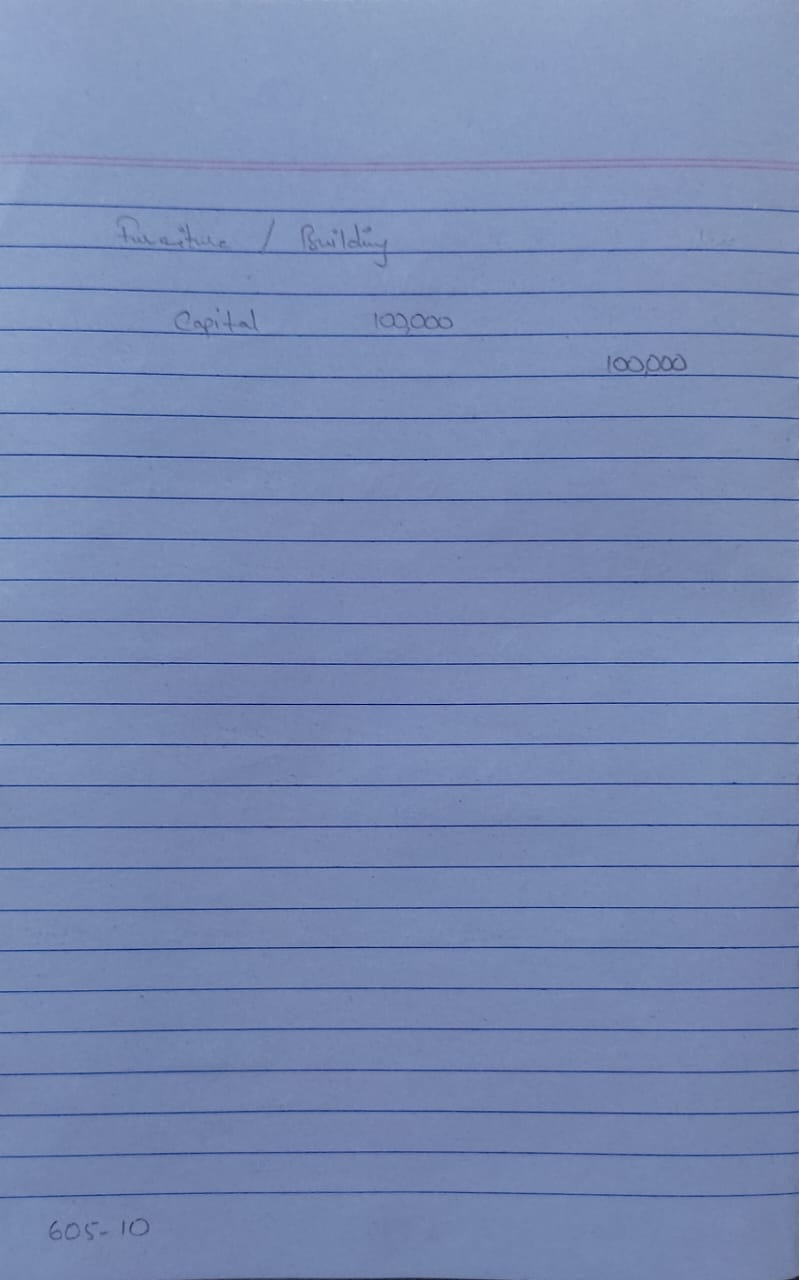 Furniture / Building
Capital 100,000
100,000
605-10